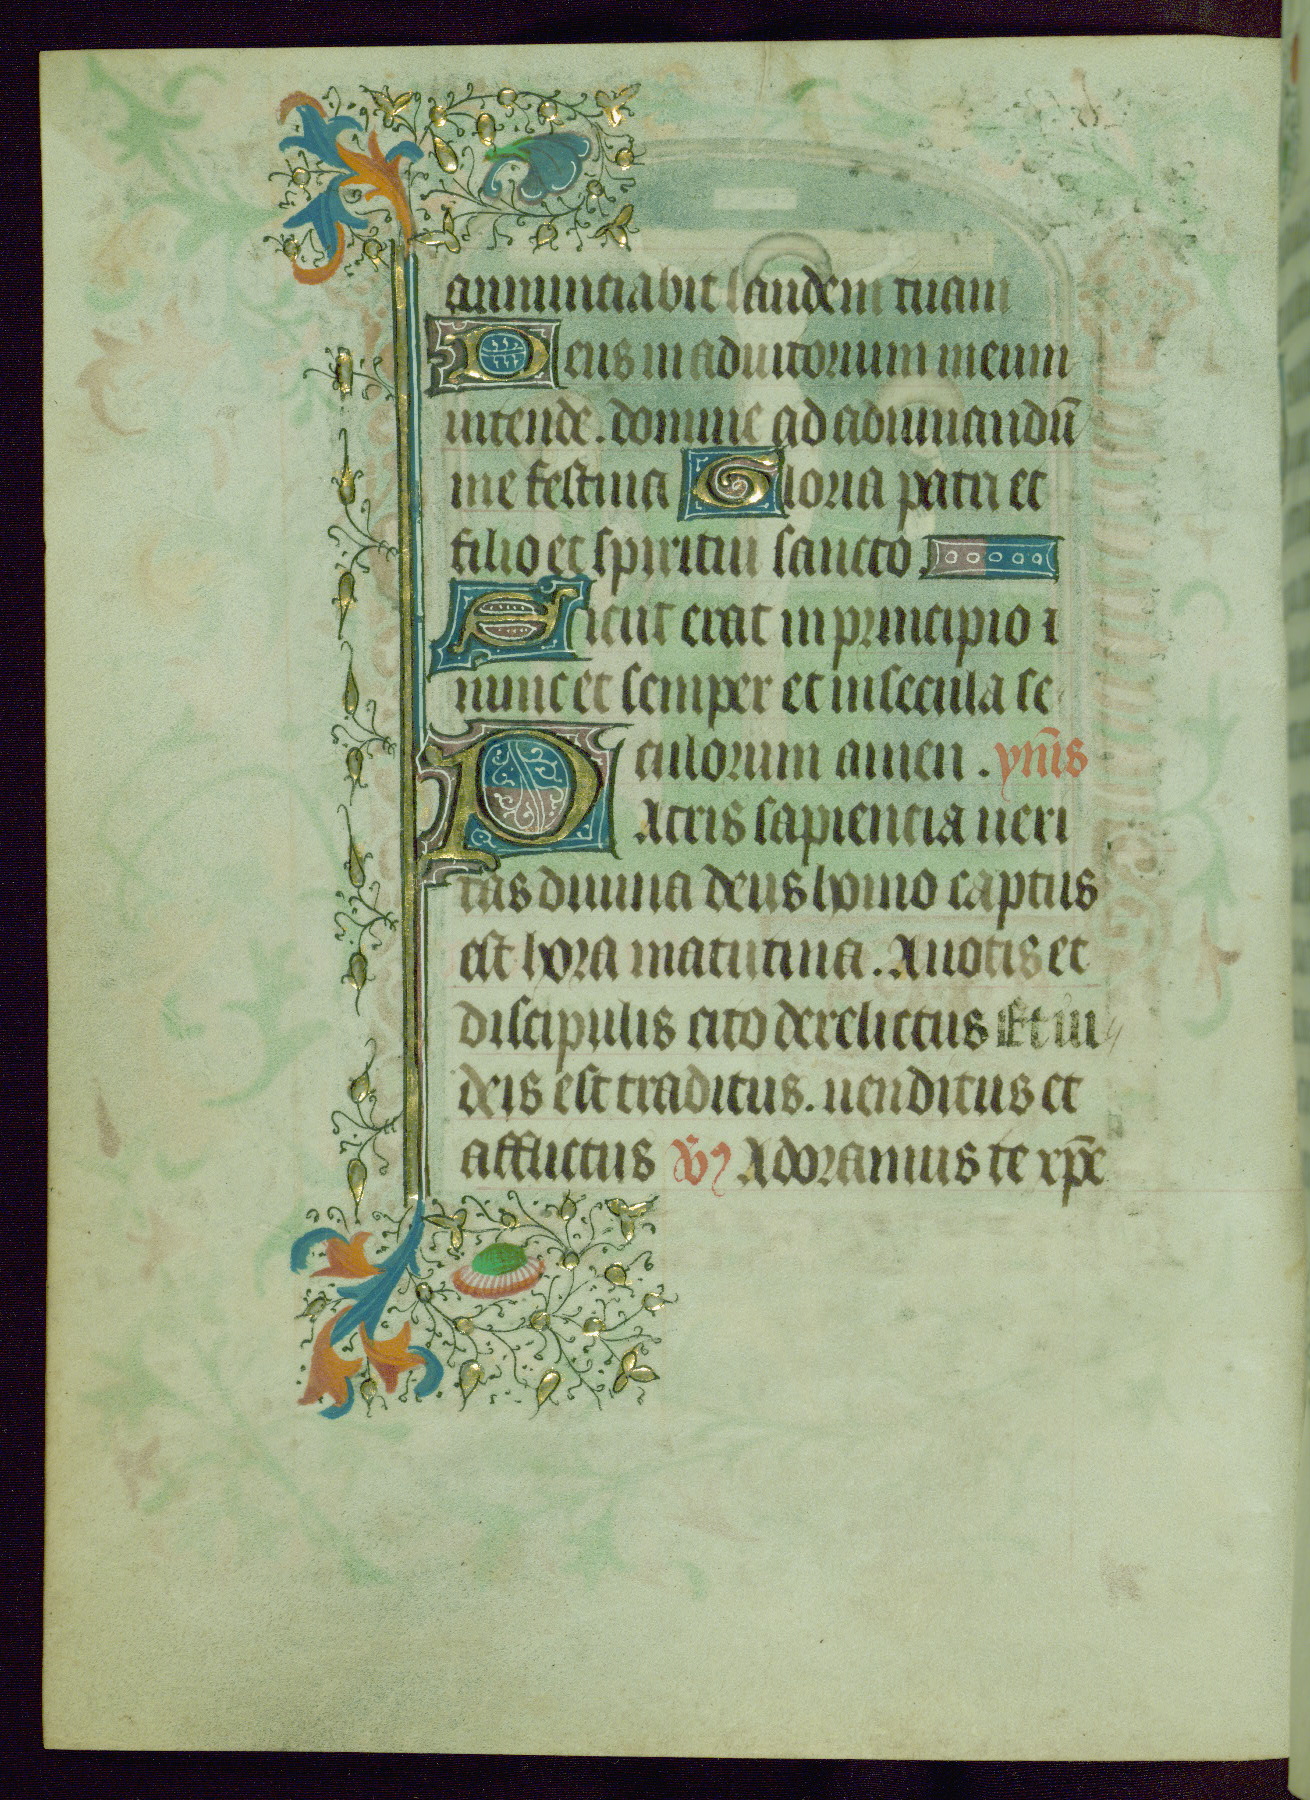 annunciabit laudem tuam
Deus in adiutorium meum
intende. domine ad adiuuandū
me festina Gloria patri et
filio et spiritui sancto.
Sicut erat in principio ⁊
nunc et semper et in secula se
culorum amen. ymīs
PAtris sapiencia ueri
tas diuina deus homo captus
est hora matutina. A notis et
discipulis cito derelictus Et iu
deis est traditus. uenditus et
afflictus Adoramus te xp̄e